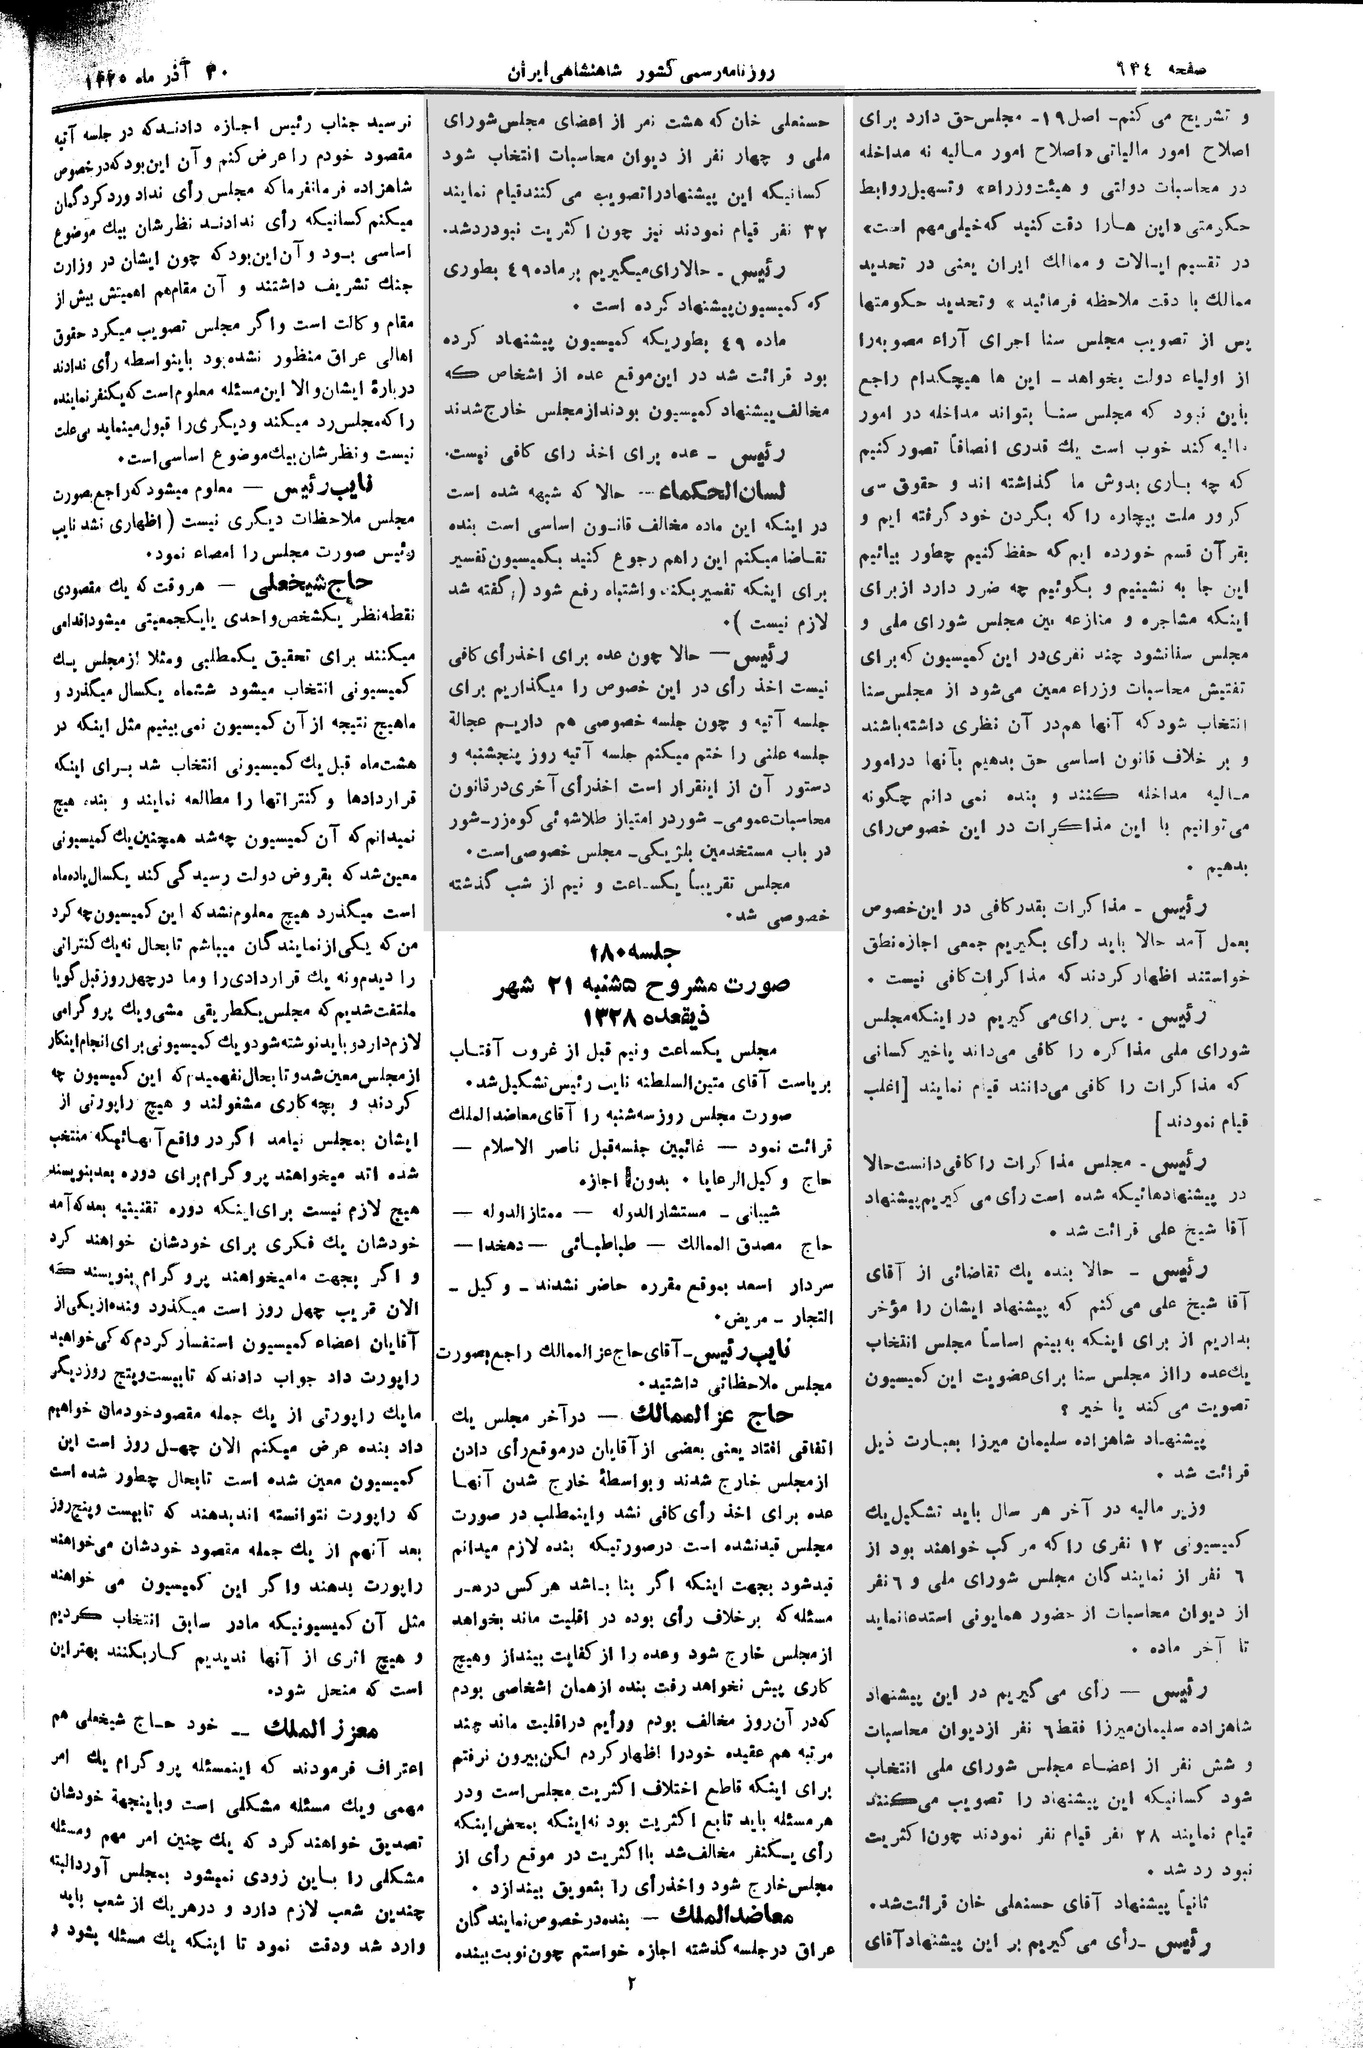 صفحه ۹۳۴
روزنامه رسمی کشور شاهنشاهی ایران
۳۰ آذر ماه ۱۳۲۵
و تشریح می کنم- اصل ۱۹- مجلس حق دارد برای
اصلاح امور مالیاتی «اصلاح امور مالیه نه مداخله
در محاسبات دولتی و هیئت وزراء» وتسهیل روابط
حکومتی «این هارا دقت کنید که خیلی مهم است»
در تقسیم ایالات و ممالک ایران یعنی در تحدید
ممالک با دقت ملاحظه فرمائید» وتحدید حکومتها
پس از تصویب مجلس سنا اجرای آراء مصوبه را
از اولیاء دولت بخواهد- این ها هیچکدام راجع
باین نبود که مجلس سنا بتواند مداخله در امور
مالیه کند خوب است یك قدری انصافاً تصور کنیم
که چه باری بدوش ما گذاشته اند و حقوق سی
کرور ملت بیچاره را که بگردن خود گرفته ایم و
بقرآن قسم خورده ایم که حفظ کنیم چطور بیائیم
این جا به نشینیم و بگوئیم چه ضرر دارد از برای
اینکه مشاجره و منازعه بین مجلس شورای ملی و
مجلس سنا نشود چند نفری در این کمیسیون که برای
تفتیش محاسبات وزراء معین می شود از مجلس سنا
انتخاب شود که آنها هم در آن نظری داشته باشند
و بر خلاف قانون اساسی حق بدهیم بآنها در امور
مالیه مداخله کنند و بنده نمی دانم چگونه
می توانیم با این مذاکرات در این خصوص رای
بدهیم .
رئیس - مذاکرات بقدر کافی در این خصوص
بعمل آمد حالا باید رأی بگیریم جمعی اجازه نطق
خواستند اظهار کردند که مذاکرات کافی نیست .
رئیس . پس رای می گیریم در اینکه مجلس
شورای ملی مذاکره را کافی می داند یا خیر کسانی
که مذاکرات را کافی می دانند قیام نمایند [اغلب
قیام نمودند]
رئیس - مجلس مذاکرات را کافی دانست حالا
در پیشنهادهائیکه شده است رأی می گیریم پیشنهاد
آقا شیخ علی قرائت شد .
رئیس - حالا بنده یك تقاضائی از آقای
آقا شیخ علی می کنم که پیشنهاد ایشان را مؤخر
بداریم از برای اینکه به بینم اساساً مجلس انتخاب
یك عده را از مجلس سنا برای عضویت این کمیسیون
تصویت می کند یا خیر ؟
پیشنهاد شاهزاده سلیمان میرزا بعبارت ذیل
قرائت شد .
وزیر مالیه در آخر هر سال باید تشکیل یك
کمیسیونی ۱۲ نفری را که مرکب خواهند بود از
۶ نفر از نمایندگان مجلس شورای ملی و ۶ نفر
از دیوان محاسبات از حضور همایونی استدعا نماید
تا آخر ماده .
رئیس — رأی می گیریم در این پیشنهاد
شاهزاده سلیمان میرزا فقط ۶ نفر از دیوان محاسبات
و شش نفر از اعضاء مجلس شورای ملی انتخاب
شود کسانیکه این پیشنهاد را تصویب می کنند
قیام نمایند ۲۸ نفر قیام نفر نمودند چون اکثریت
نبود رد شد .
ثانیاً پیشنهاد آقای حسنعلی خان قرائت شد.
رئیس -رأی می گیریم بر این پیشنهاد آقای
حسنعلی خان که هشت نمر از اعضای مجلس شورای
ملی و چهار نفر از دیوان محاسبات انتخاب شود
کسانیکه این پیشنهاد را تصویب می کنند قیام نمایند
۳۲ نفر قیام نمودند نیز چون اکثریت نبود رد شد.
رئیس - حالا رای میگیریم بر ماده ۴۹ بطوری
که کمیسیون پیشنهاد کرده است .
ماده ۴۹ بطوریکه کمیسیون پیشنهاد کرده
بود قرائت شد در این موقع عده از اشخاص که
مخالف پیشنهاد کمیسیون بودند از مجلس خارج شدند
رئیس - عده برای اخذ رای کافی نیست.
لسان الحکماء --- حالا که شبهه شده است
در اینکه این ماده مخالف قانون اساسی است بنده
تقاضا میکنم این را هم رجوع کنید بکمیسیون تفسیر
برای اینکه تفسیر بکند واشتباه رفع شود ( گفته شد
لازم نیست ).
رئیس — حالا چون عده برای اخذ رأی کافی
نیست اخذ رأی در این خصوص را میگذاریم برای
جلسه آتیه و چون جلسه خصوصی هم داریم عجالة
جلسه علنی را ختم میکنم جلسه آتیه روز پنجشنبه و
دستور آن از اینقرار است اخذ رأی آخری در قانون
محاسبات عمومی- شور در امتیاز طلاشوئی کوه زر- شور
در باب مستخدمین بلژیکی- مجلس خصوصی است.
مجلس تقریباً یکساعت و نیم از شب گذشته
خصوصی شد.
جلسه ۱۸۰
صورت مشروح ۵شنبه ۲۱ شهر
ذیقعده ۱۳۲۸
مجلس یکساعت ونیم قبل از غروب آفتاب
بریاست آقای متین السلطنه نایب رئیس تشکیل شد.
صورت مجلس روز سه شنبه را آقای معاضد الملك
قرائت نمود — غائبین جلسه قبل ناصر الاسلام —
حاج وکیل الرعایا . بدون اجازه
شیبانی - مستشار الدوله — ممتاز الدوله —
حاج مصدق الممالک — طباطبائی — دهخدا —
سردار اسعد بموقع مقرره حاضر نشدند - و کیل -
التجار - مریض.
نایب رئیس- آقای حاج عز الممالک راجع بصورت
مجلس ملاحظاتی داشتید.
حاج عز الممالك — در آخر مجلس یك
اتفاقی افتاد یعنی بعضی از آقایان در موقع رأی دادن
از مجلس خارج شدند و بواسطهٔ خارج شدن آنها
عده برای اخذ رأی کافی نشد و اینمطلب در صورت
مجلس قید نشده است در صورتیکه بنده لازم میدانم
قید شود بجهت اینکه اگر بنا باشد هر کس در هر
مسئله که برخلاف رأی بوده در اقلیت ماند بخواهد
از مجلس خارج شود و عده را از کفایت بیندازد و هیچ
کاری پیش نخواهد رفت بنده از همان اشخاصی بودم
که در آن روز مخالف بودم ورأیم در اقلیت ماند چند
مرتبه هم عقیده خود را اظهار کردم لکن بیرون نرفتم
برای اینکه قاطع اختلاف اکثریت مجلس است ودر
هر مسئله باید تابع اکثریت بود نه اینکه بمحض اینکه
رأی یکنفر مخالف شد با اکثریت در موقع رأی از
مجلس خارج شود و اخذ رأی را بتعویق بیندازد .
معاضد الملك — بنده در خصوص نمایندگان
عراق در جلسه گذشته اجازه خواستم چون نوبت ببنده
نرسید جناب رئیس اجازه دادند که در جلسه آتیه
مقصود خودم را عرض کنم و آن این بود که در خصوص
شاهزاده فرمانفرما که مجلس رأی نداد ورد کرد گمان
میکنم کسانیکه رأی ندادند نظرشان بیك موضوع
اساسی بود و آن این بود که چون ایشان در وزارت
جنك تشریف داشتند و آن مقام هم اهمیتش بیش از
مقام وکالت است واگر مجلس تصویب میکرد حقوق
اهالی عراق منظور نشده بود باینواسطه رأی ندادند
دربارهٔ ایشان والا این مسئله معلوم است که یکنفر نماینده
را که مجلس رد میکند و دیگری را قبول مینماید بی علت
نیست ونظرشان بیك موضوع اساسی است.
نایب رئیس — معلوم میشود که راجع بصورت
مجلس ملاحظات دیگری نیست ( اظهاری نشد نایب
رئیس صورت مجلس را امضاء نمود.
حاج شیخعلی — هر وقت که یك مقصودی
نقطه نظر یکشخص واحدی یا یکجمعیتی میشود اقدامی
میکنند برای تحقیق یکمطلبی ومثلا از مجلس یك
کمیسیونی انتخاب میشود ششماه یکسال میگذرد و
ماهیچ نتیجه از آن کمیسیون نمی بینیم مثل اینکه در
هشت ماه قبل یك کمیسیونی انتخاب شد برای اینکه
قراردادها و کنتراتها را مطالعه نمایند و بنده هیچ
نمیدانم که آن کمیسیون چه شد همچنین یك کمیسیونی
معین شد که بقروض دولت رسیدگی کند یکسال یا ده ماه
است میگذرد هیچ معلوم نشد که این کمیسیون چه کرد
من که یکی از نمایندگان میباشم تا بحال نه یك کنتراتی
را دیدم و نه یك قراردادی را وما در چهل روز قبل گویا
ملتفت شدیم که مجلس یکطریقی مشی ویك پروگرامی
لازم دارد و باید نوشته شود و یك کمیسیونی برای انجام اینکار
از مجلس معین شد و تا بحال نفهمیدم که این کمیسیون چه
کردند و بچه کاری مشغولند و هیچ راپورتی از
ایشان بمجلس نیامد اگر در واقع آنهائیکه منتخب
شده اند میخواهند پروگرام برای دوره بعد بنویسند
هیچ لازم نیست برای اینکه دوره تقنینیه بعد که آمد
خودشان یك فکری برای خودشان خواهند کرد
و اگر بجهت ما میخواهند پروگرام بنویسند که
الان قریب چهل روز است میگذرد و بنده از یکی از
آقایان اعضاء کمیسیون استفسار کردم که کی خواهید
راپورت داد جواب دادند که تا بیست و پنج روز دیگر
ما یك راپورتی از یك جمله مقصود خودمان خواهیم
داد بنده عرض میکنم الان چهل روز است این
کمیسیون معین شده است تا بحال چطور شده است
که راپورت نتوانسته اند بدهند که تا بیست و پنج روز
بعد آنهم از یك جمله مقصود خودشان می خواهند
راپورت بدهند واگر این کمیسیون می خواهند
مثل آن کمیسیونیکه ما در سابق انتخاب کردیم
و هیچ اثری از آنها ندیدیم کار بکنند بهتر این
است که منحل شود.
معزز الملك — خود حاج شیخعلی هم
اعتراف فرمودند که اینمسئله پروگرام یك امر
مهمی ویك مسئله مشکلی است وباینجهة خودشان
تصدیق خواهند کرد که یك چنین امر مهم ومسئله
مشکلی را باین زودی نمیشود بمجلس آورد البته
چندین شعب لازم دارد و در هر یك از شعب باید
وارد شد ودقت نمود تا اینکه یك مسئله بشود و
۲